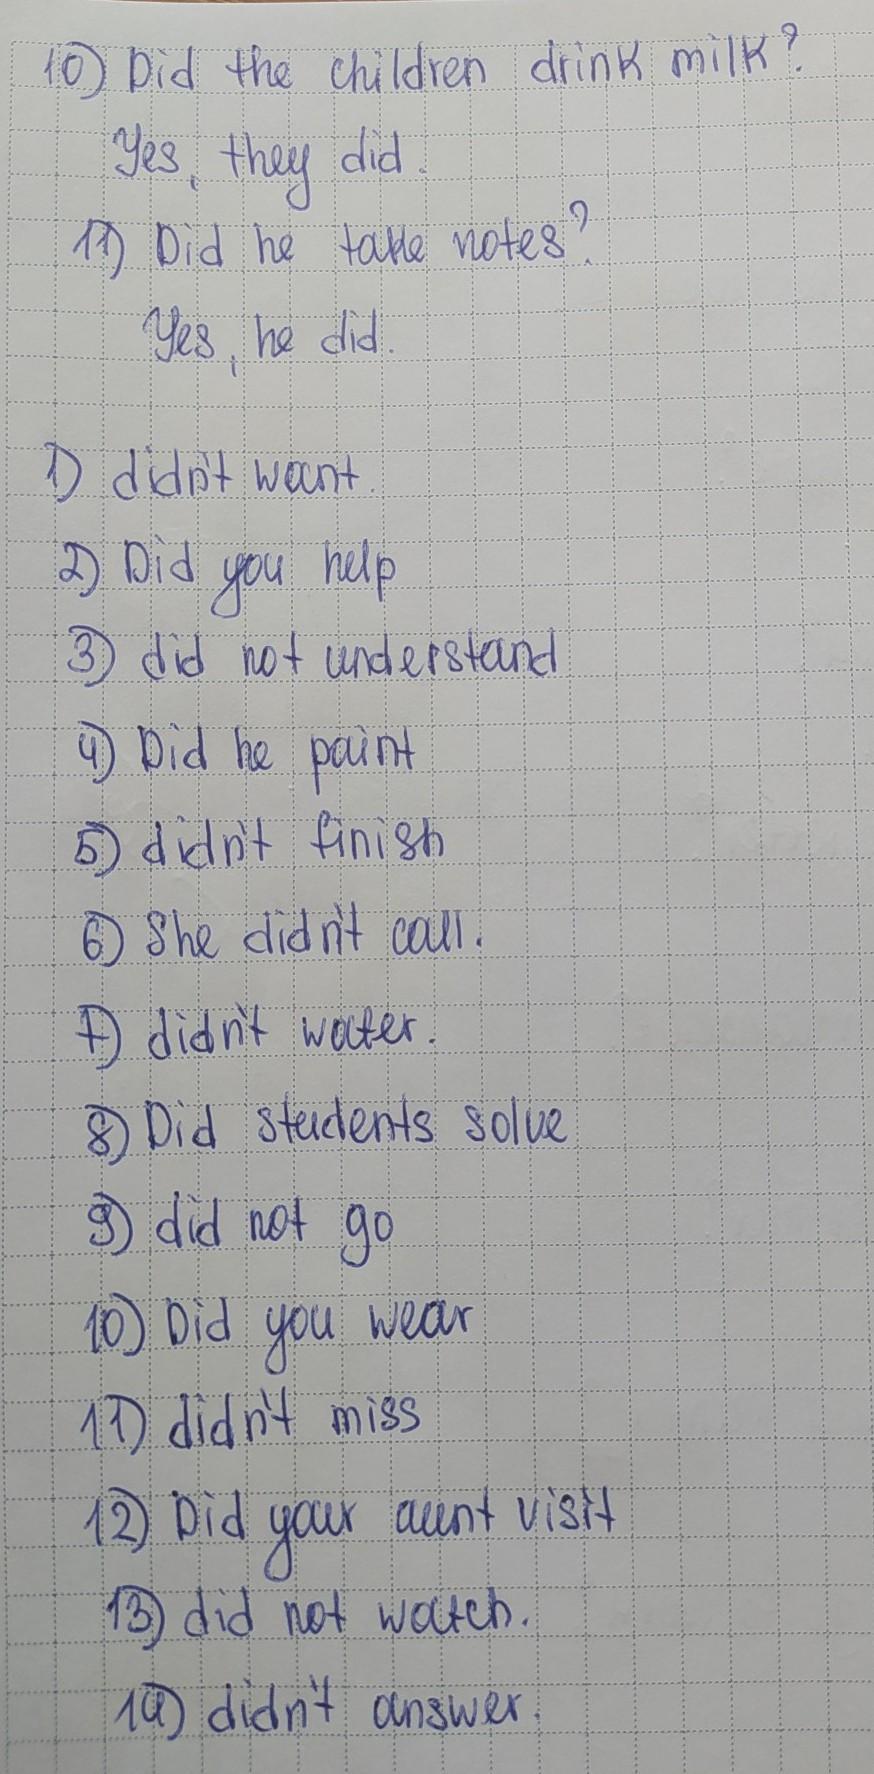 10) Did the children drink milk?
Yes, they did.
11) Did he take notes?
Yes, he did.
1) didn't want.
2) Did you help
3) did not understand
4) Did he paint
5) didn't finish
6) She didn't call.
7) didn't water.
8) Did students solve
9) did not go
10) Did you wear
11) didn't miss
12) Did your aunt visit
13) did not watch.
14) didn't answer.